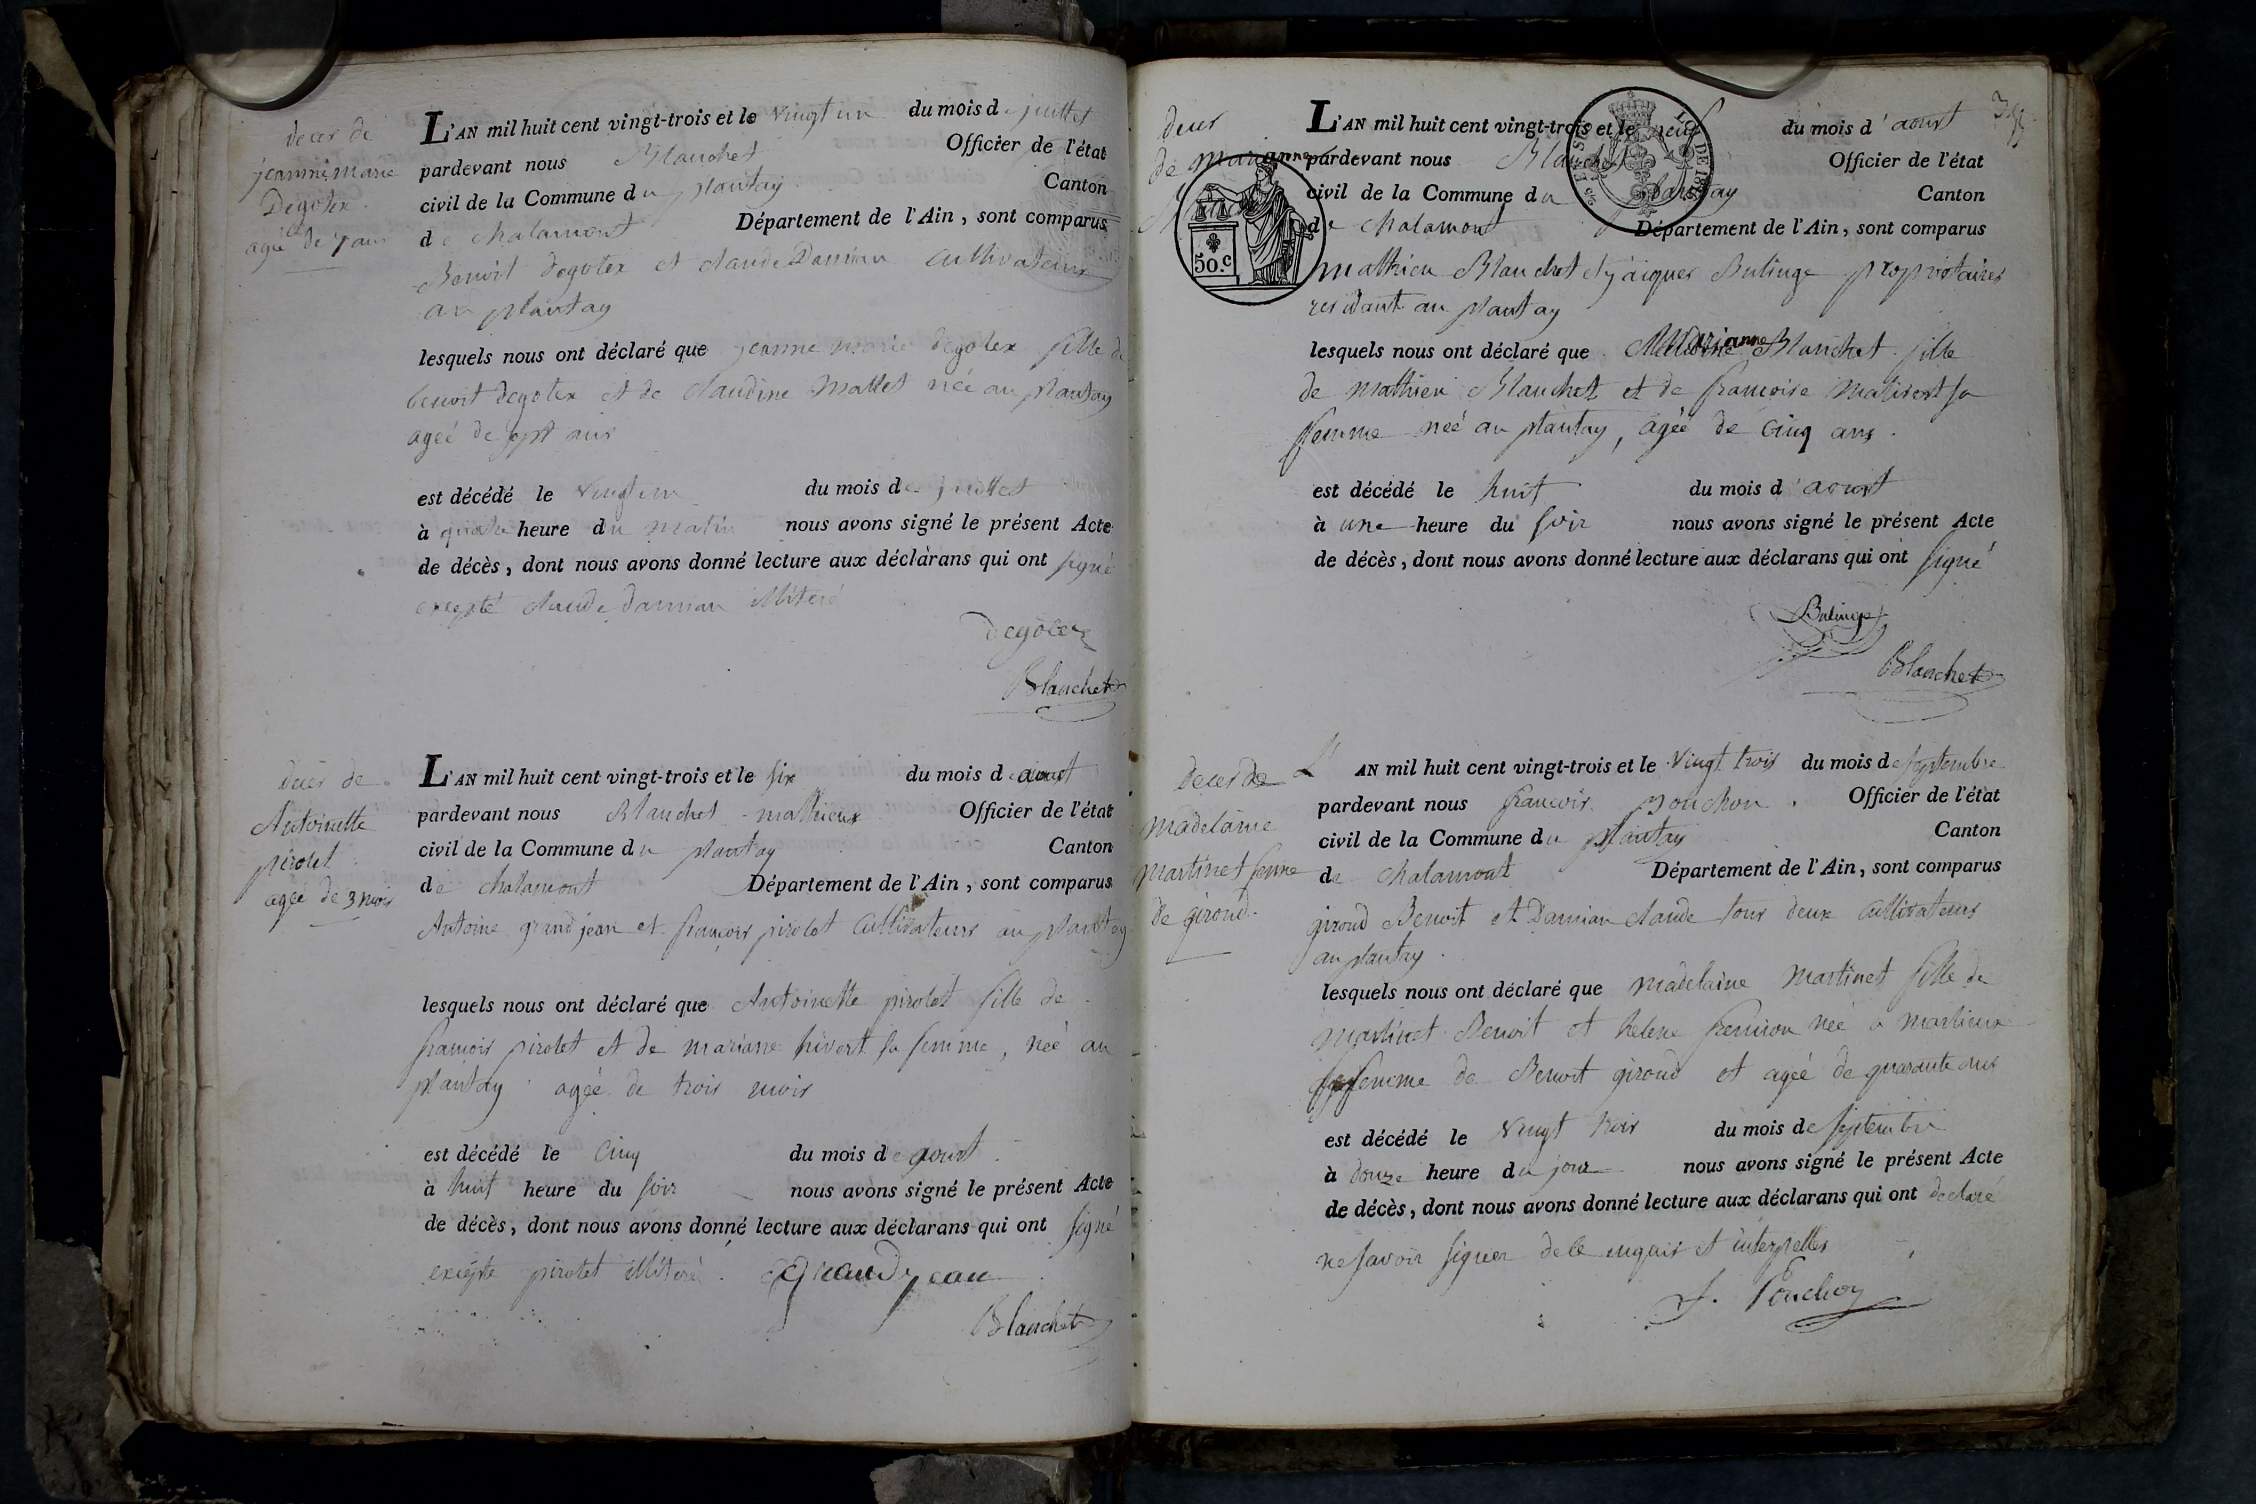 deces de
jeanne marie
Degolex
agée de 7 ans
L'AN mil huit cent vingt-trois et le vingt un du mois de juillet
pardevant nous Blanchet Officier de l'état
civil de la Commune du plantay Canton
de chalamont Département de l'Ain, sont comparus
Benoit degolex et claude Damian cultivateurs
au plantay
lesquels nous ont déclaré que jeanne marie degolex fille de
benoit degolex et de claudine Mallet née au plantay
ageé de sept ans
est décédé le vingt un du mois de juillet
à quatre heure du matin nous avons signé le présent Acte
de décès, dont nous avons donné lecture aux déclarans qui ont signé
excepté claude damian illiteré
degolex
Blanchet
deces de
Antoinette
pirolet
agée de 3 mois
L'AN mil huit cent vingt-trois et le six du mois d'aoust
pardevant nous Blanchet mathieux Officier de l'état
civil de la Commune du plantay Canton
de chalamont Département de l'Ain, sont comparus
Antoine grandjean et françois pirolet cultivateurs au plantay
lesquels nous ont déclaré que Antoinette pirolet fille de
françois pirolet et de mariane hivert sa femme, née au
plantay ageé de trois mois
est décédé le cinq du mois d'aoust
à huit heure du soir nous avons signé le présent Acte
de décès, dont nous avons donné lecture aux déclarans qui ont signé
excepte pirolet illiteré. grandjean
Blanchet
deces
de marianne
50.c
LOI DE
L'AN mil huit cent vingt-trois et le neuf du mois d'aoust
pardevant nous Blanchet Officier de l'état
civil de la Commune du plantay Canton
de chalamont Département de l'Ain, sont comparus
mathieu Blanchet et jaiques Bulinge propriotaires
residant au plantay
lesquels nous ont déclaré que Marianne Blanchet fille
de mathieu Blanchet et de françoise Malivert sa
femme neé au plantay, ageé de cinq ans.
est décédé le huit du mois d'aoust
à une heure du soir nous avons signé le présent Acte
de décès, dont nous avons donné lecture aux déclarans qui ont signé
Bulinge
Blanchet
deces de
madelaine
martinet femme
de giroud.
L'AN mil huit cent vingt-trois et le vingt trois du mois de septembre
pardevant nous françois ponchon. Officier de l'état
civil de la Commune du plantay Canton
de chalamont Département de l'Ain, sont comparus
giroud Benoit et Damian claude tous deux cultivateurs
au plantay.
lesquels nous ont déclaré que madelaine martinet fille de
martinet Benoit et helene née a marlieux
femme de Benoit giroud et ageé de quarante ans
est décédé le vingt trois du mois de septembre
à douze heure du jour nous avons signé le présent Acte
de décès, dont nous avons donné lecture aux déclarans qui ont declaré
ne savoir signer de ce enquis et interpelles
f. Ponchon